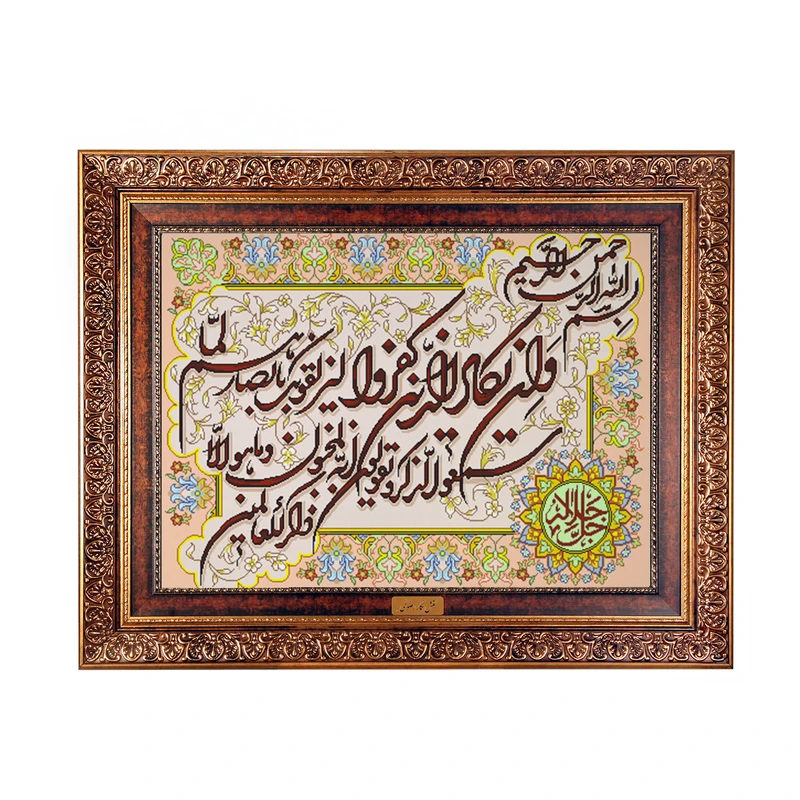 بسم الله الرحمن الرحيم
وَإِن يكاد الذين كفروا ليزلقونك بابصارهم لمّا
سمعوا الذكر و يقولون انه لمجنون و ما هو الّا
ذكر للعالمين
جل جلاله